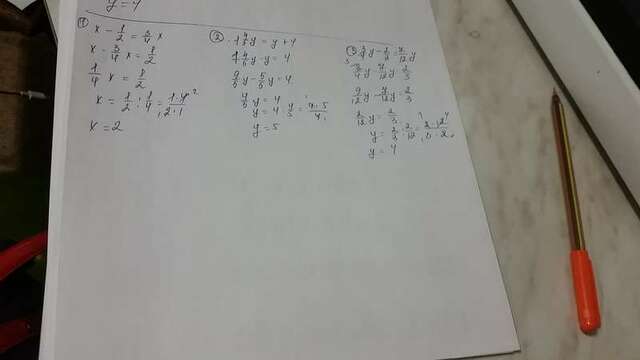 y = 4
① x - 1/2 = 3/4 x
x - 3/4 x = 1/2
1/4 x = 1/2
x = 1/2 : 1/4 = 1·4/2·1
x = 2
② 1 4/5 y = y + 4
1 4/5 y - y = 4
9/5 y - 5/5 y = 4
4/5 y = 4
y = 4 : 4/5 = 4·5/4
y = 5
3/4 y - 7/12 y = 2/3
9/12 y - 7/12 y = 2/3
2/12 y = 2/3
y = 2/3 : 2/12 = 2·12/3·2
y = 4